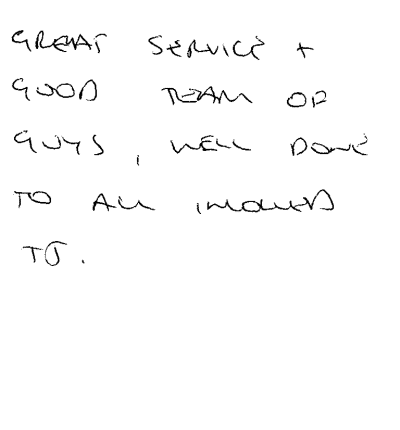 GREAT SERVICE +
GOOD TEAM OF
GUYS, WELL DONE
TO ALL INVOLVED
TJ.